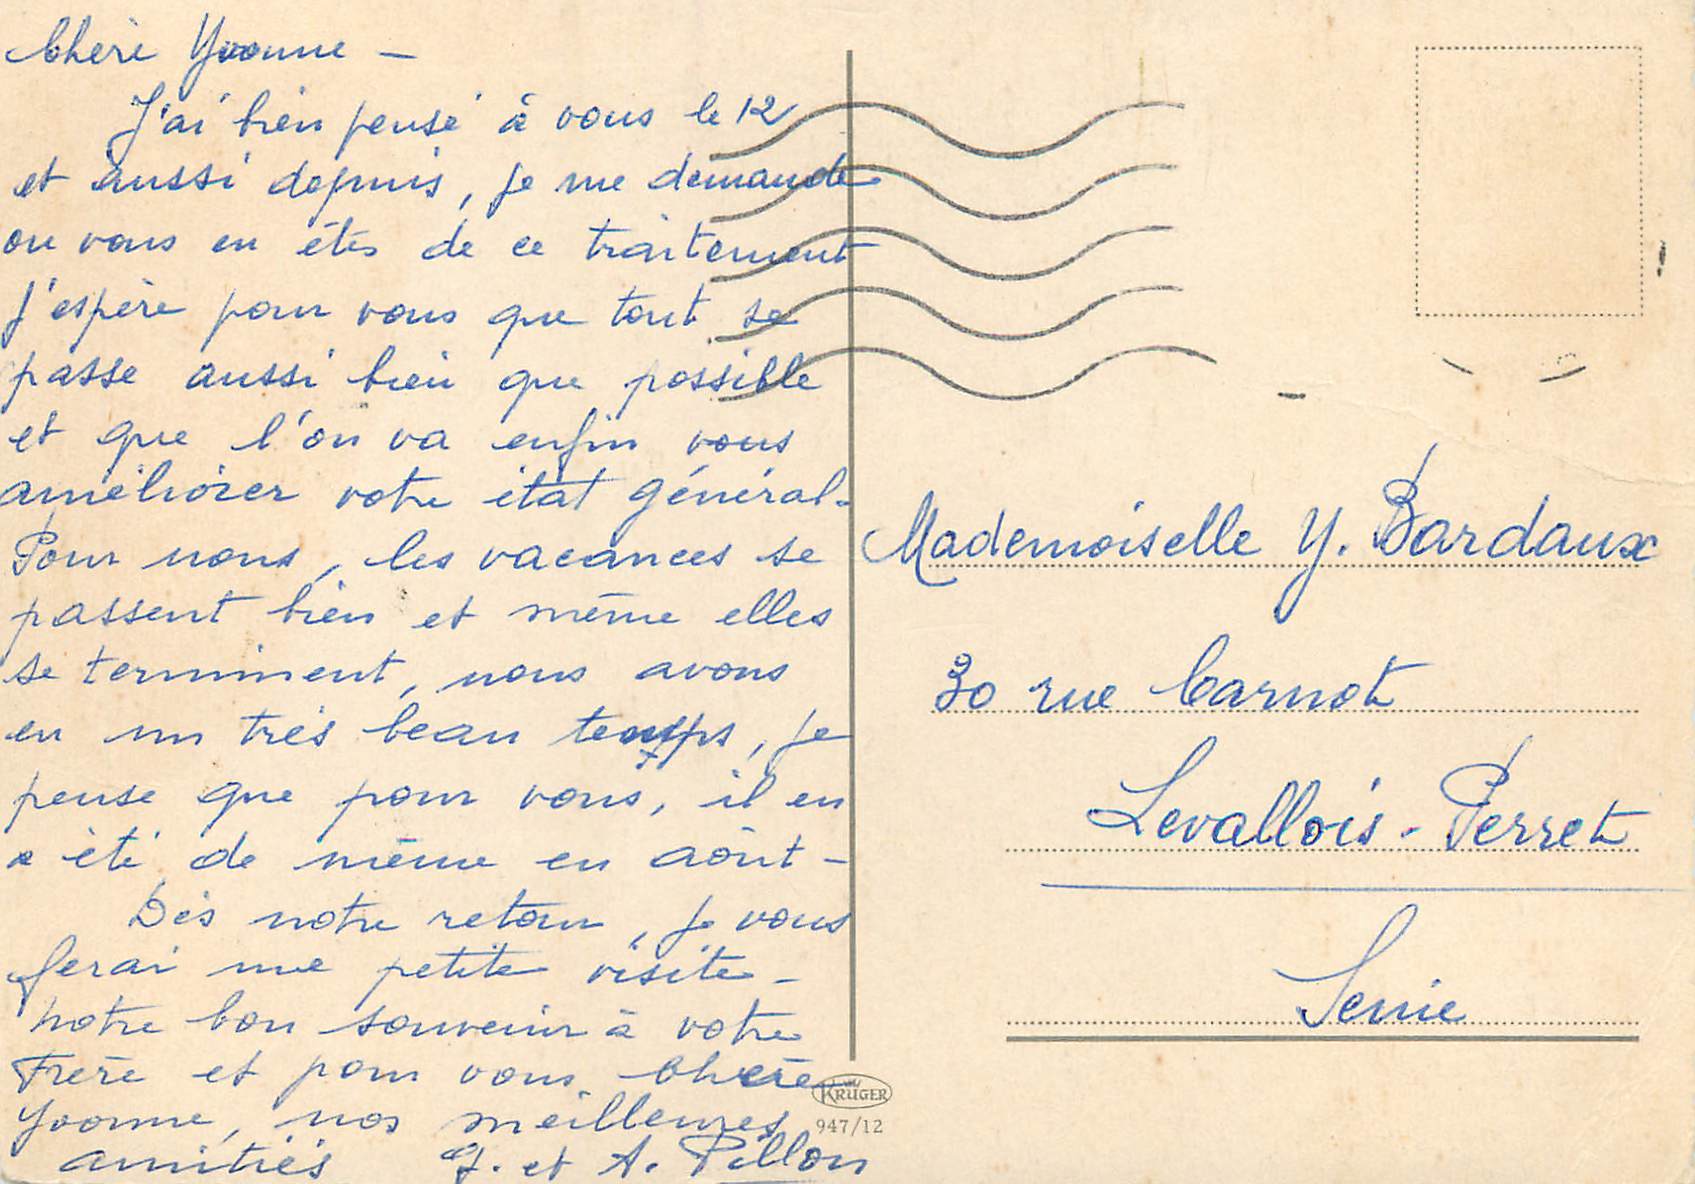 Chère Yvonne –
J'ai bien pensé à vous le 12
et aussi depuis, je me demande
ou vous en êtes de ce traitement
J'espère pour vous que tout se
passe aussi bien que possible
et que l'on va enfin vous
améliorer votre état général.
Pour nous, les vacances se
passent bien et même elles
se terminent, nous avons
eu un très beau temps, je
pense que pour vous, il en
a été de même en août –
Dès notre retour, je vous
ferai une petite visite –
Notre bon souvenir à votre
Frère et pour vous. Chère
Yvonne, nos meilleures
amitiés G. et A. Pillon
KRÜGER
947/12
Mademoiselle Y. Bardaux
30 rue Carnot
Levallois-Perret
Seine